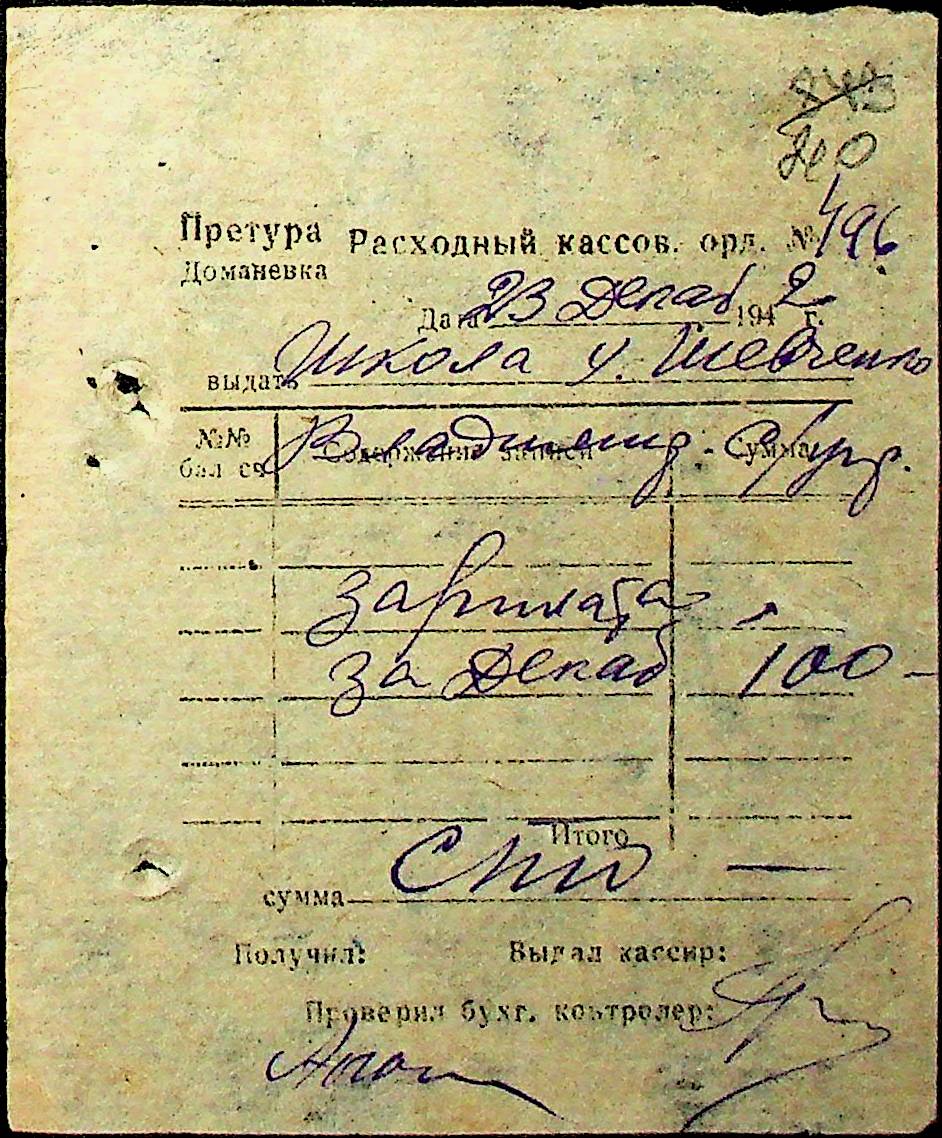 240
Претура Расходный кассов. орд. № 496
Доманевка
Дата 23 Декаб 1942 г.
выдать Школа у. Шевченко
№№ бал сч Содержание записи Сумма
зарплата
за Декаб 100 -
Итого
сумма Сто —
Получил: Выдал кассир:
Проверил бухг. контролер: